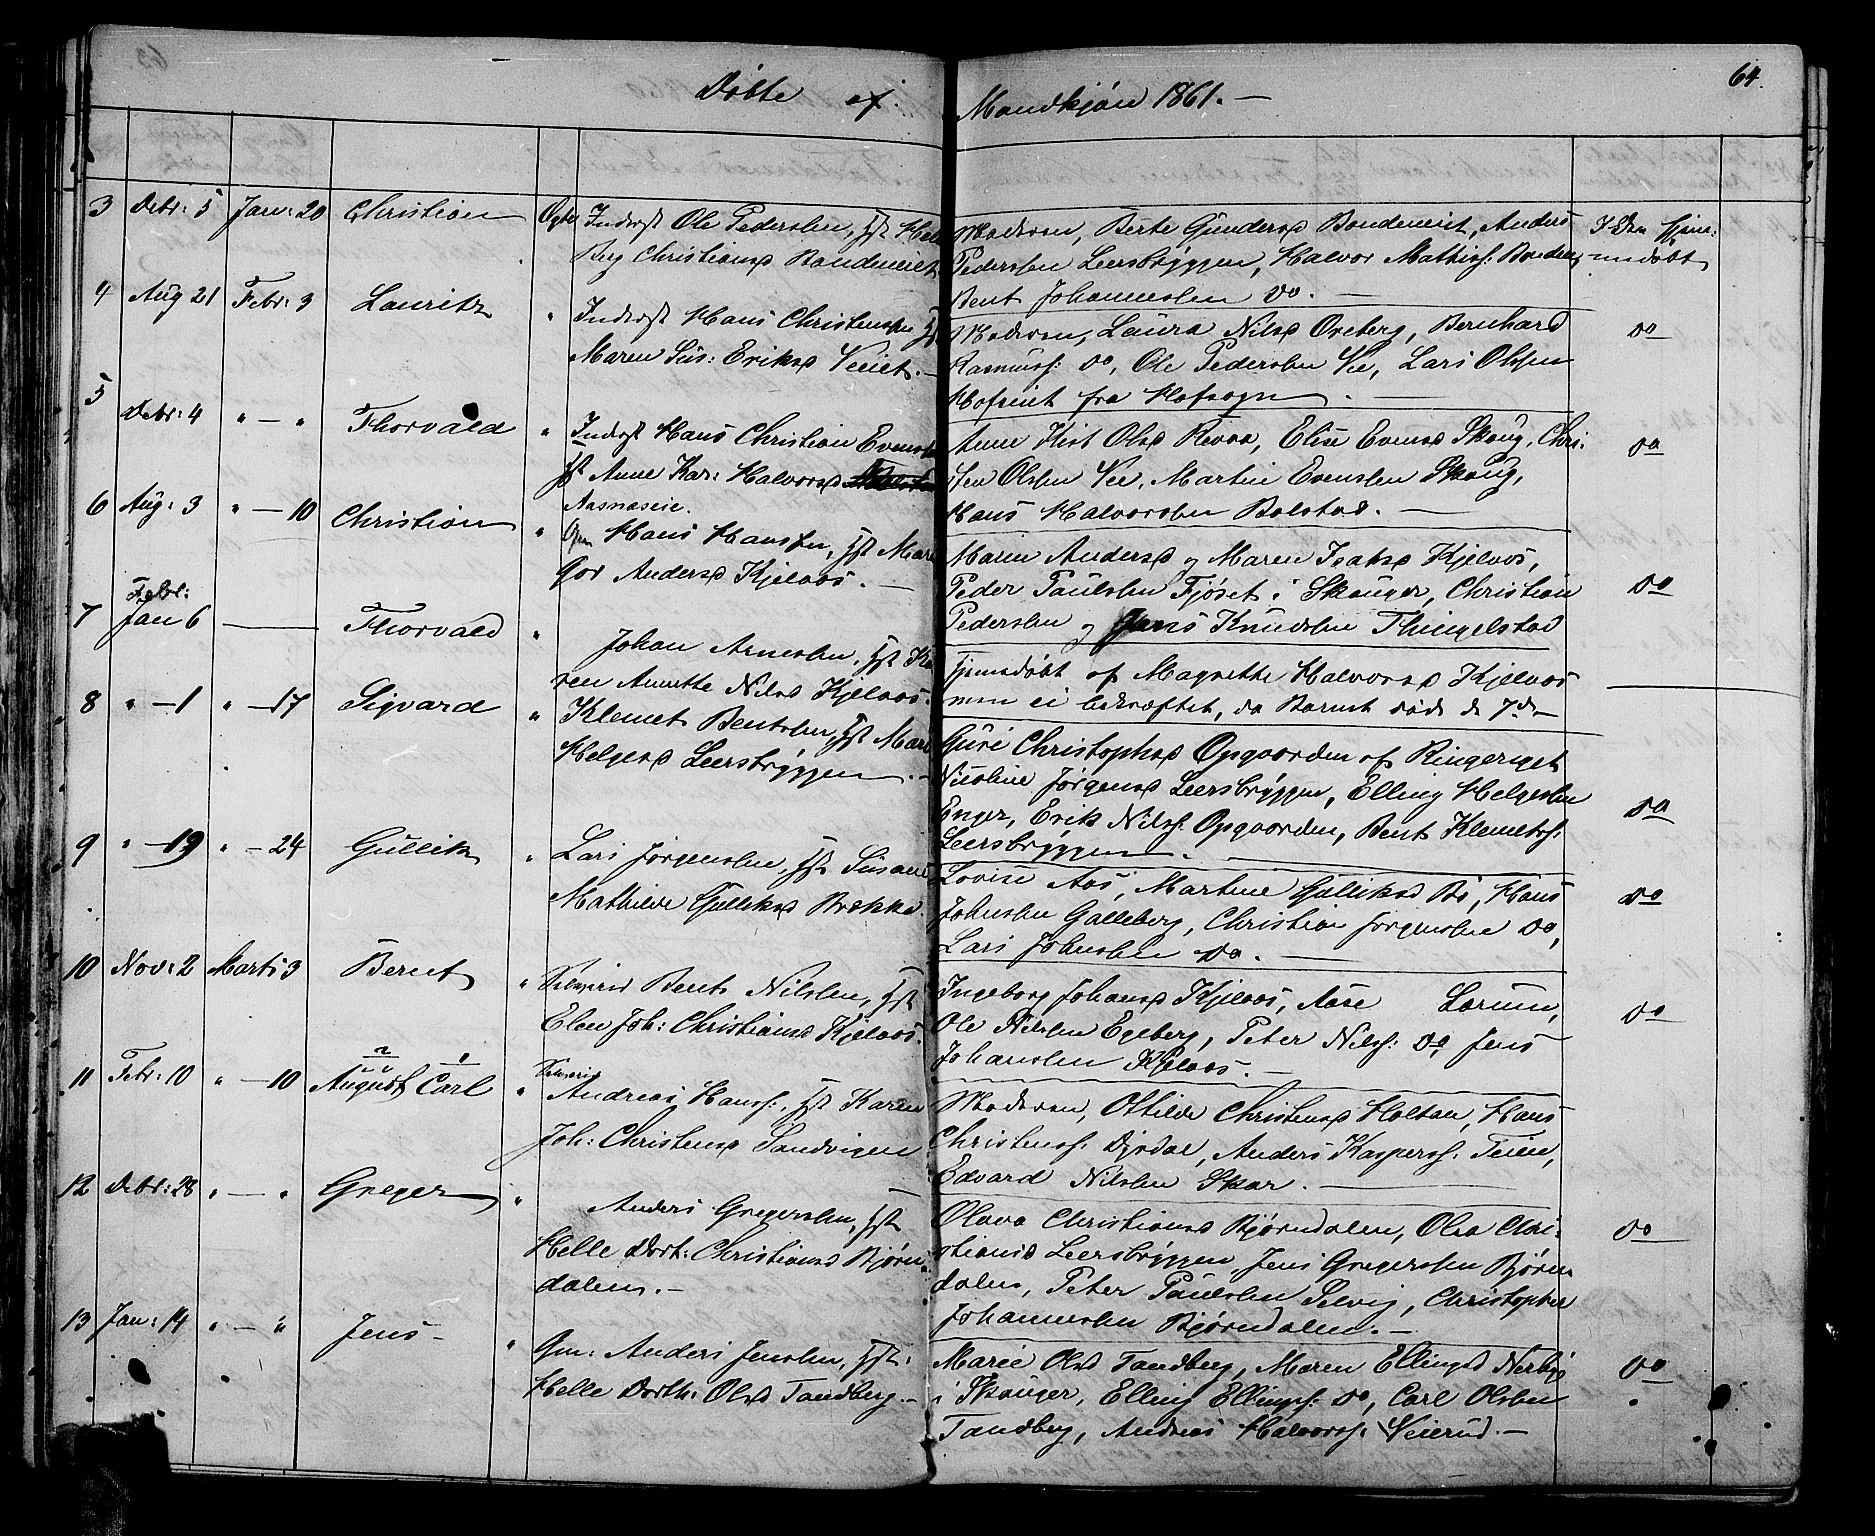 Døbte af
Mandkjøn 1861. —
64.
3 Debr: 5 Janr: 20 Christian Ægte Inderst Ole Pederslen, Hst Hel
Berg Christiansd Bondeneiet
Moderen, Berte Gundersd Bondeneiet, Anders
Pederslen Leersbryggen, Halvor Mathiss: Bonden,
Bent Johanneslen do. —
I Den hjem:
mdøbt
4 Aug 21 Febr: 3 Lauritz " Inderst Hans Christenslen Hst
Maren Sus: Eriksd Veiet. —
Moderen, Laura Nilsd Oreberg, Bernhard
Rasmuss: do, Ole Pederslen Vee, Lars Olslen
Hofseiet fra Hofsogn. —
do
5 Debr: 4 " — " Thorvald " Inderst Hans Christian Evensl
Hst Anne Kar: Halvorsd
Aasnæseie.
Anne Kirst Olsd Revaa, Elise Evensd Skoug, Chri-
sten Olslen Vee, Martin Evenslen Skoug,
Hans Halvorslen Bolstad. —
do
6 Aug: 3 " — 10 Christian " Gm Hans Hanslen, Hst Mare
Gor Andersd Kjelaas. —
Marin Andersd og Maren Isaksd Kjelaas,
Peder Paulslen Fjøset i Skouger, Christian
Pederslen og Jens Knudslen Thingelstad
do
7 Febr:
Jan 6 — Thorvald " Johan Arneslen, Hst Ka
ren Annette Nilsd Kjelaas.
Hjemmedøbt af Magrethe Halvorsd Kjelaas
men ei bekræftet, da Barnet døde d 7de —
8 " — 1 " — 17 Sigvard " Klemet Bentslen, Hst Mare
Helgesd Leersbryggen. —
Guri Christophsd Opgaarden af Ringeriget
Nicoline Jørgensd Leersbryggen, Elling Helgeslen
Enger, Erik Nilss: Opgaarden, Bent Klemetss:
Leersbryggen. —
do
9 " — 19 " — 24 Gullik " Lars Jørgenslen, Hst Susane
Mathilde Gulliksd Brække.
Lovise Aas, Martine Gulliksd Bø, Hans
Johnslen Galleberg, Christian Jørgenslen do,
Lars Johnslen do. —
do
10 Nov: 2 Marts 3 Bernt " Selveier Bent Nilslen, Hst
Elen Joh: Christiansd Kjelaas.
Ingeborg Johansd Kjelaas, Aase Lorum,
Ole Nilslen Egeberg, Peter Nilss: do, Jens
Johanslen Kjelaas. —
do
11 Febr: 10 " — 10 August Carl " Selveier
Andreas Hanss:, Hst Karen
Joh: Christensd Sandvigen
Moderen, Ottilde Christensd Holtan, Hans
Christenss: Dyrdal, Anders Kasperss: Teien,
Edvard Nilslen Skar. —
12 Debr: 28 " — " Greger " Anders Gregerslen, Hst
Helle Dort: Christiansd Bjørn
dalen. —
Olava Christiansd Bjørndalen, Olea Chri-
stiansd Leersbryggen, Jens Gregerslen Bjørn-
dalen, Peter Paulslen Selvig, Christopher
Johanneslen Bjørndalen. —
do
13 Jan: 14 " — " Jens — " Gm: Anders Jenslen, Hst:
Helle Dorth: Olsd Tandberg. —
Marie Olsd Tandberg, Maren Ellingsd Nerbÿ
i Skouger, Elling Ellingss: do, Carl Olslen
Tandberg, Andreas Halvorss: Veierud. —
do